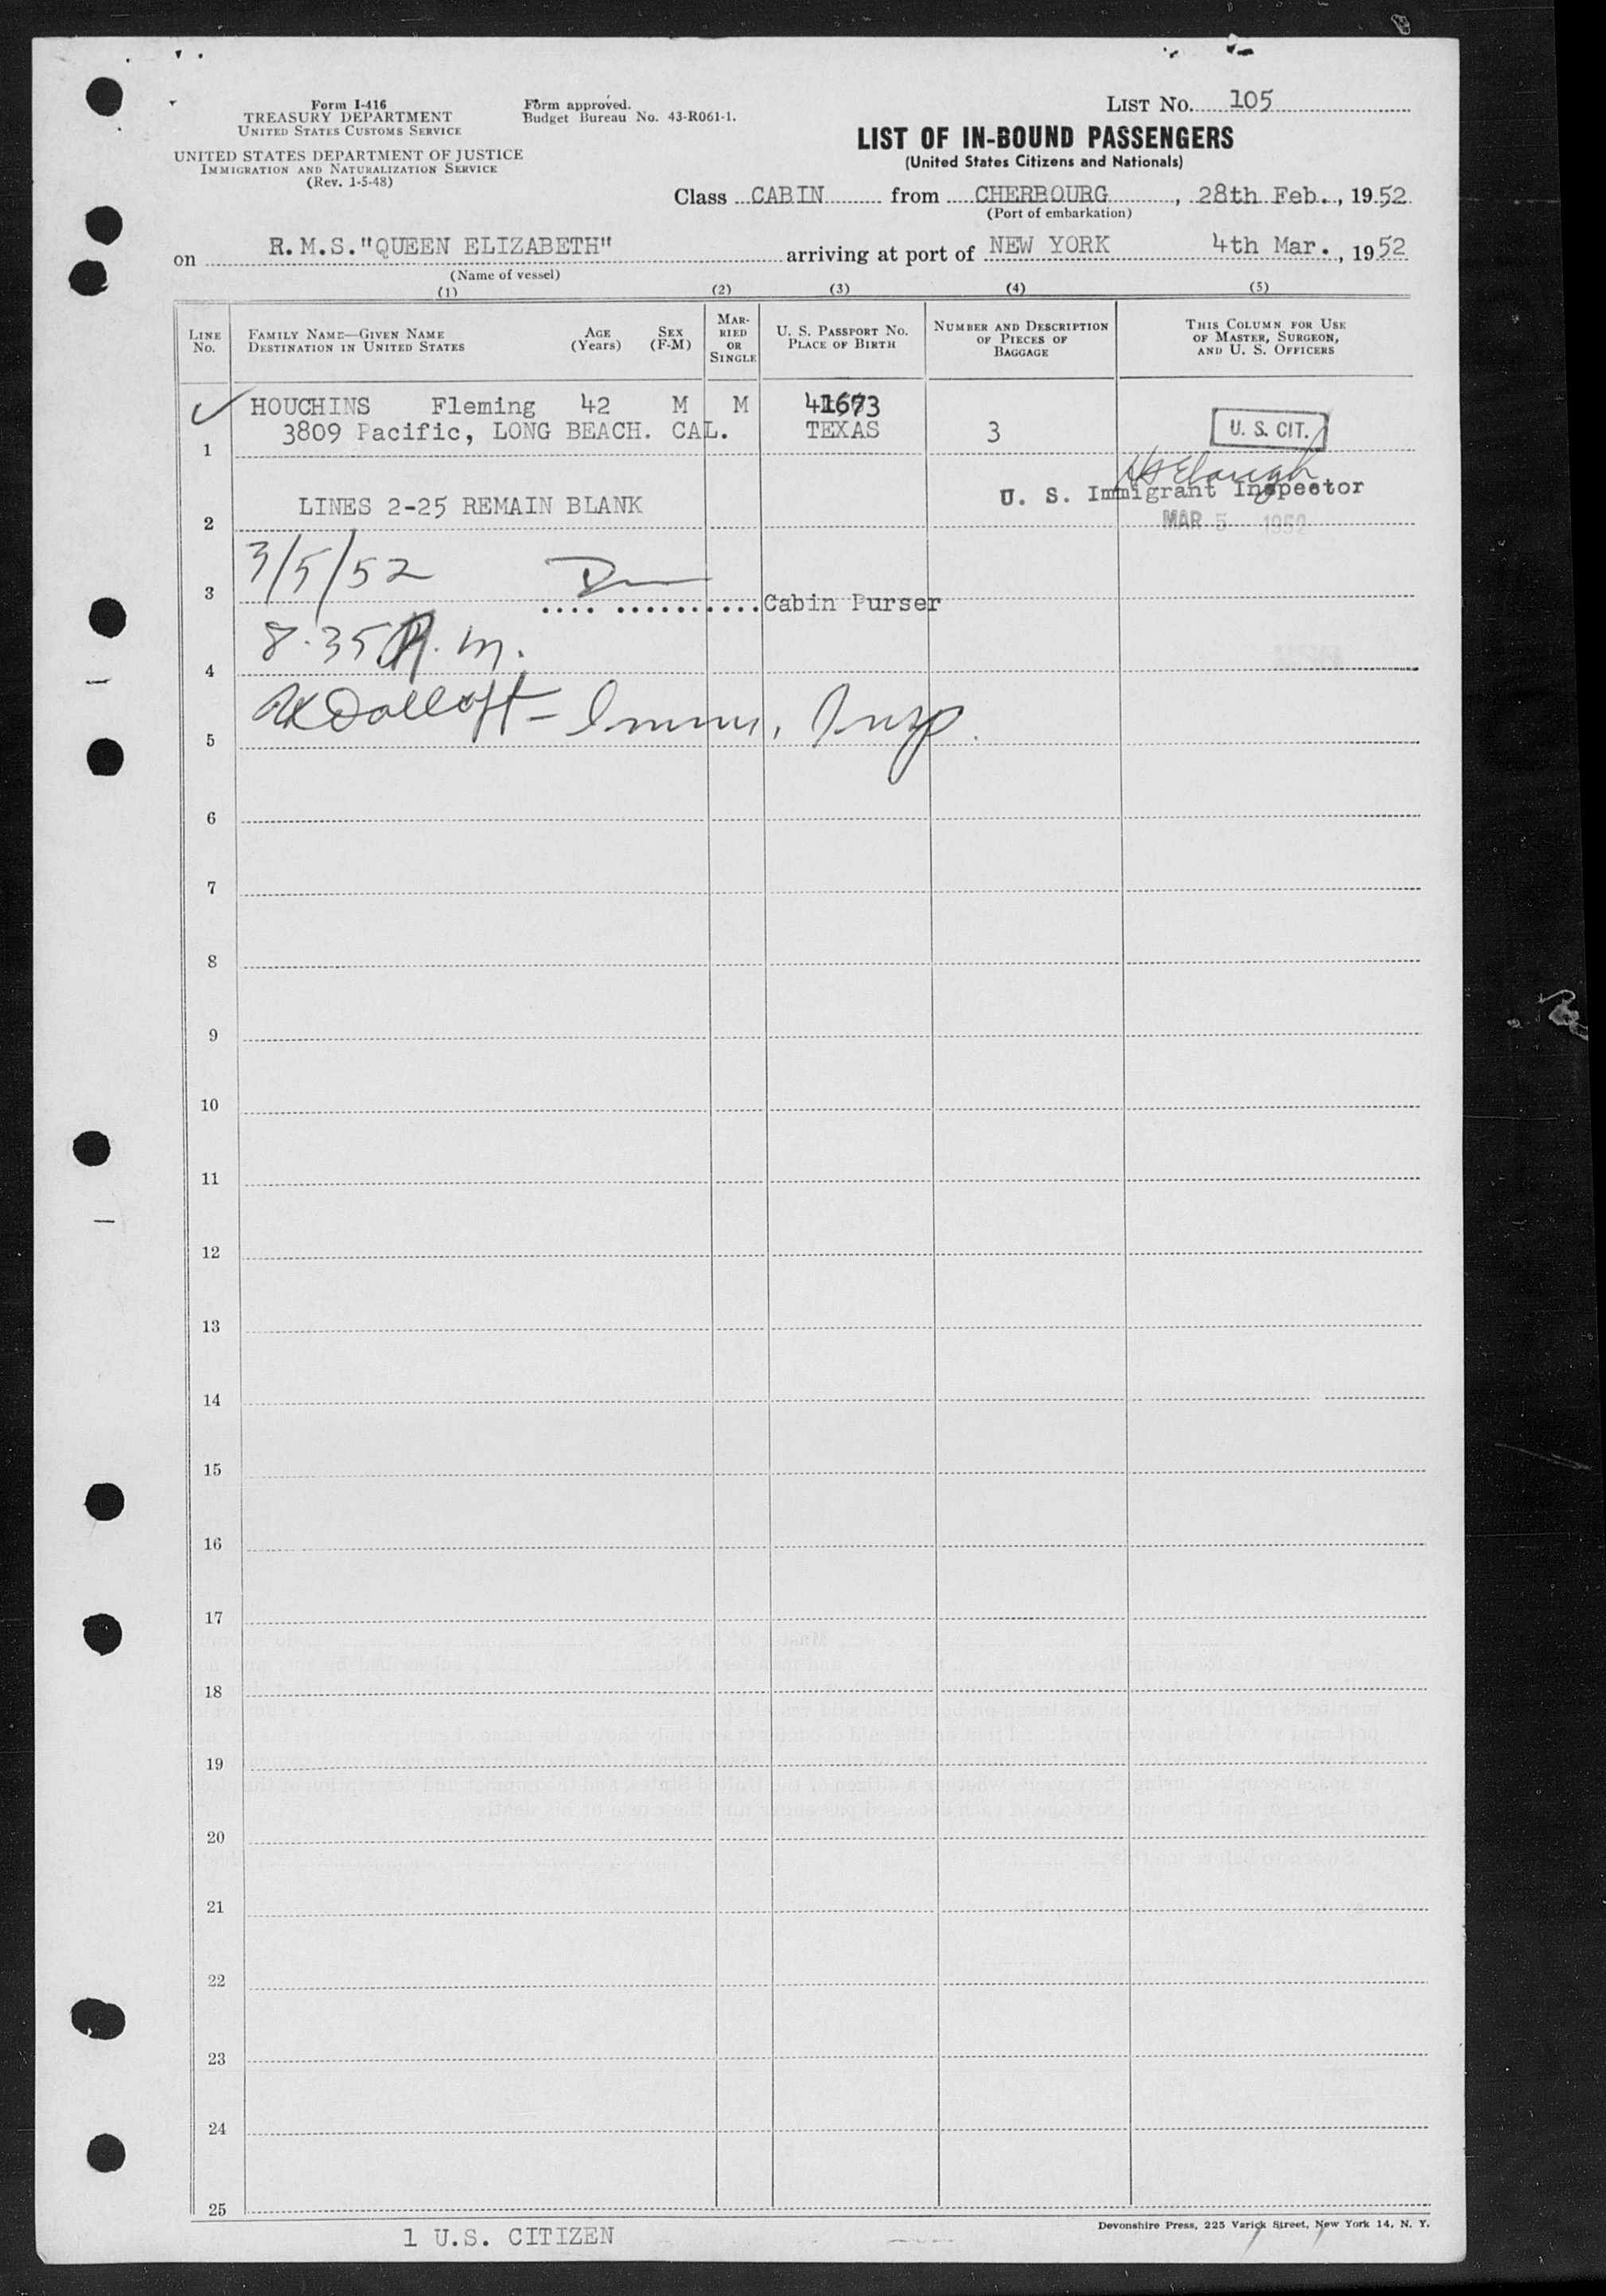 Form I-416
TREASURY DEPARTMENT
UNITED STATES CUSTOMS SERVICE
UNITED STATES DEPARTMENT OF JUSTICE
IMMIGRATION AND NATURALIZATION SERVICE
(Rev. 1-5-48)
Form approved.
Budget Bureau No. 43-R061-1.
LIST NO. 105
LIST OF IN-BOUND PASSENGERS
(United States Citizens and Nationals)
Class CABIN from CHERBOURG, 28th Feb., 1952
(Port of embarkation)
on R.M.S."QUEEN ELIZABETH" arriving at port of NEW YORK 4th Mar., 1952
(Name of vessel)
(1) (2) (3) (4) (5)
LINE NO.
FAMILY NAME—GIVEN NAME
DESTINATION IN UNITED STATES
AGE (Years)
SEX (F-M)
MARRIED OR SINGLE
U. S. PASSPORT NO.
PLACE OF BIRTH
NUMBER AND DESCRIPTION OF PIECES OF BAGGAGE
THIS COLUMN FOR USE OF MASTER, SURGEON, AND U. S. OFFICERS
HOUCHINS Fleming 42 M M
3809 Pacific, LONG BEACH. CAL. TEXAS 3 U. S. CIT.
1
U. S. Immigrant Inspector
LINES 2-25 REMAIN BLANK
MAR 5 1952
2
3/5/52
3 Cabin Purser
8.35 A.m.
4
Immi, Insp.
5
6
7
8
9
10
11
12
13
14
15
16
17
18
19
20
21
22
23
24
25
1 U.S. CITIZEN
Devonshire Press, 225 Varick Street, New York 14, N. Y.